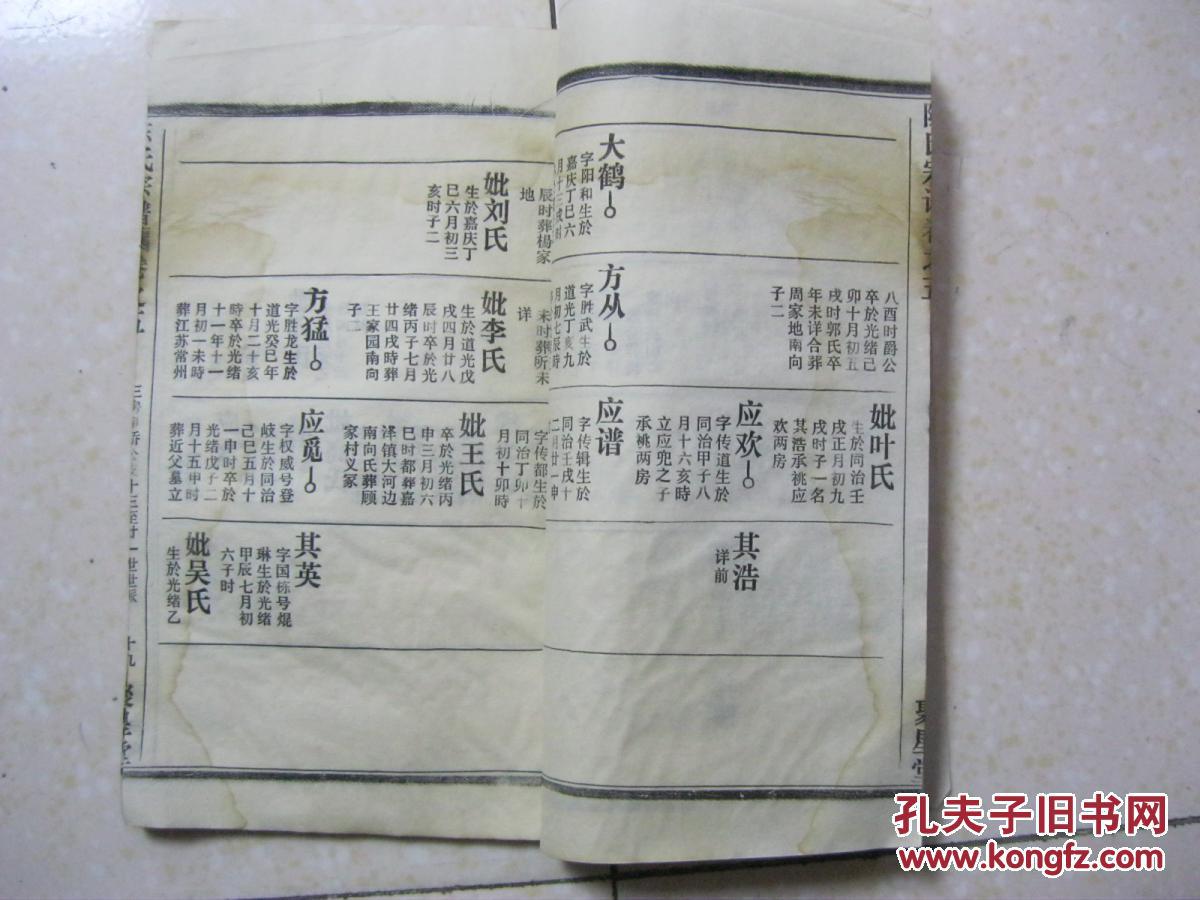 八酉时爵公
卒於光绪己
卯十月初五
戌时郭氏卒
年未详合葬
周家地南向
子二
妣叶氏
生於同治壬
戌正月初九
戌时子一名
其浩承祧应
欢两房
应欢
字传道生於
同治甲子八
月十六亥時
立应兜之子
承祧两房
其浩
详前
大鹤
字阳和生於
嘉庆丁巳六
方从
字胜武生於
道光丁亥九
月初七辰時
应谱
字传辑生於
同治壬戌十
二月廿一申
聚星堂
辰时葬杨家
地
妣刘氏
生於嘉庆丁
巳六月初三
亥时子二
未时葬所未
详
妣李氏
生於道光戊
戌四月廿八
辰时卒於光
绪丙子七月
廿四戌時葬
王家园南向
子二
方猛
字胜龙生於
道光癸巳年
十月二十亥
時卒於光绪
十一年十一
月初一未時
葬江苏常州
字传都生於
同治丁卯十
月初十卯時
妣王氏
卒於光绪丙
申三月初六
巳时都葬嘉
泽镇大河边
南向氏葬顾
家村义冢
应觅
字权威号登
岐生於同治
己巳五月十
一申时卒於
光绪戊子二
月十五甲时
葬近父墓立
其英
字国栋号焜
琳生於光绪
甲辰七月初
六子时
妣吴氏
生於光绪乙
十九
孔夫子旧书网
www.kongfz.com